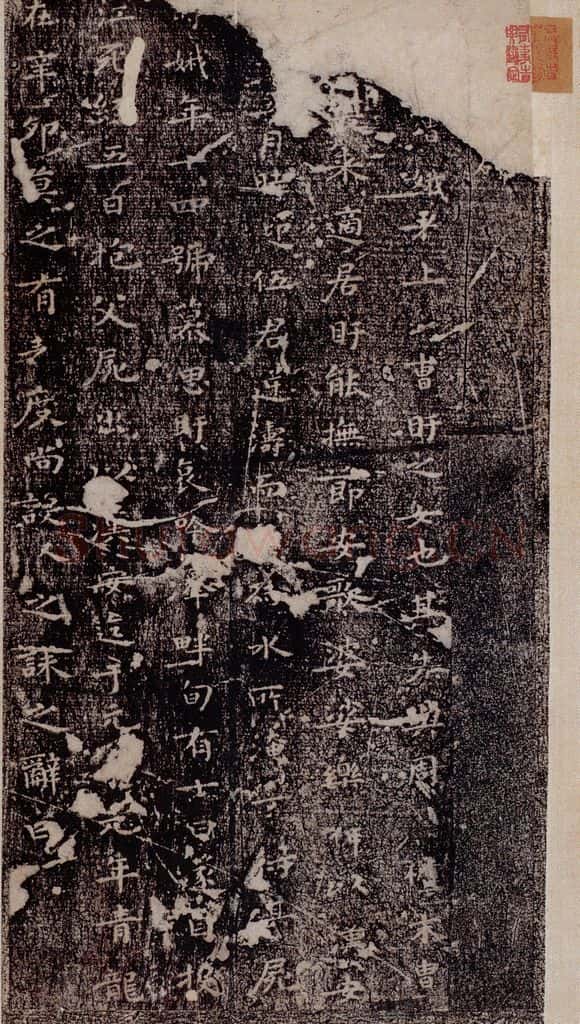 娥者上虞曹盱之女也其先與周祖末冑
來適居盱能撫節安歌婆娑樂神以漢安
月時迎伍君逆濤而為水所不得其屍
娥年十四號慕思盱哀吟澤畔旬有七日遂自投
江死經五日抱父屍出以漢安迄于元元年青龍
在辛卯莫之有表度尚設之誄之辭曰